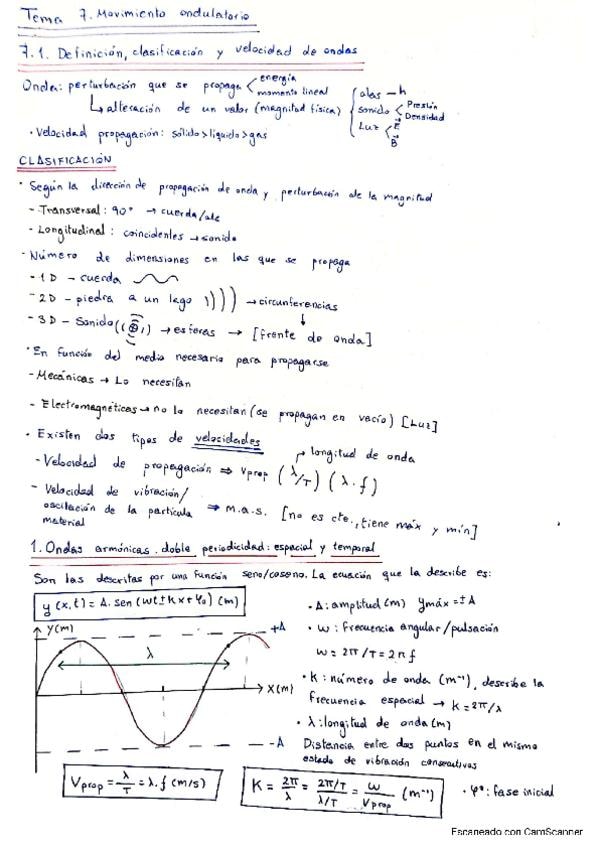 Tema 7. Movimiento ondulatorio
7.1. Definición, clasificación y velocidad de ondas
Onda: perturbación que se propaga < energía
momento lineal
↳ alteración de un valor (magnitud física) { olas - h
sonido < Presión
Densidad
Luz < E
B
· Velocidad propagación: sólido > líquido > gas
CLASIFICACIÓN
· Según la dirección de propagación de onda y perturbación de la magnitud
- Transversal: 90° → cuerda/ola
- Longitudinal: coincidentes → sonido
· Número de dimensiones en las que se propaga
- 1D - cuerda
- 2D - piedra a un lago → circunferencias
- 3D - Sonido → esferas → [frente de onda]
· En función del medio necesario para propagarse
- Mecánicas → Lo necesitan
- Electromagnéticas → no lo necesitan (se propagan en vacío) [Luz]
· Existen dos tipos de velocidades
- Velocidad de propagación ⇒ Vprop (λ/T) (λ.f) → longitud de onda
- Velocidad de vibración/
oscilación de la partícula ⇒ m.a.s. [no es cte., tiene máx y mín]
material
1. Ondas armónicas. doble periodicidad: espacial y temporal
Son las descritas por una función seno/coseno. La ecuación que la describe es:
y(x,t) = A. sen (ωt ± kx + φ₀) (m)
y(m)
+A
λ
x(m)
-A
· A: amplitud (m) ymáx = ±A
· ω: frecuencia angular/pulsación
ω = 2π/T = 2πf
· K: número de onda (m⁻¹), describe la
frecuencia espacial → k = 2π/λ
· λ: longitud de onda (m)
Distancia entre dos puntos en el mismo
estado de vibración consecutivos
Vprop = λ/T = λ.f (m/s)
K = 2π/λ = 2π/T / λ/T = ω/Vprop (m⁻¹)
· φ°: fase inicial
Escaneado con CamScanner